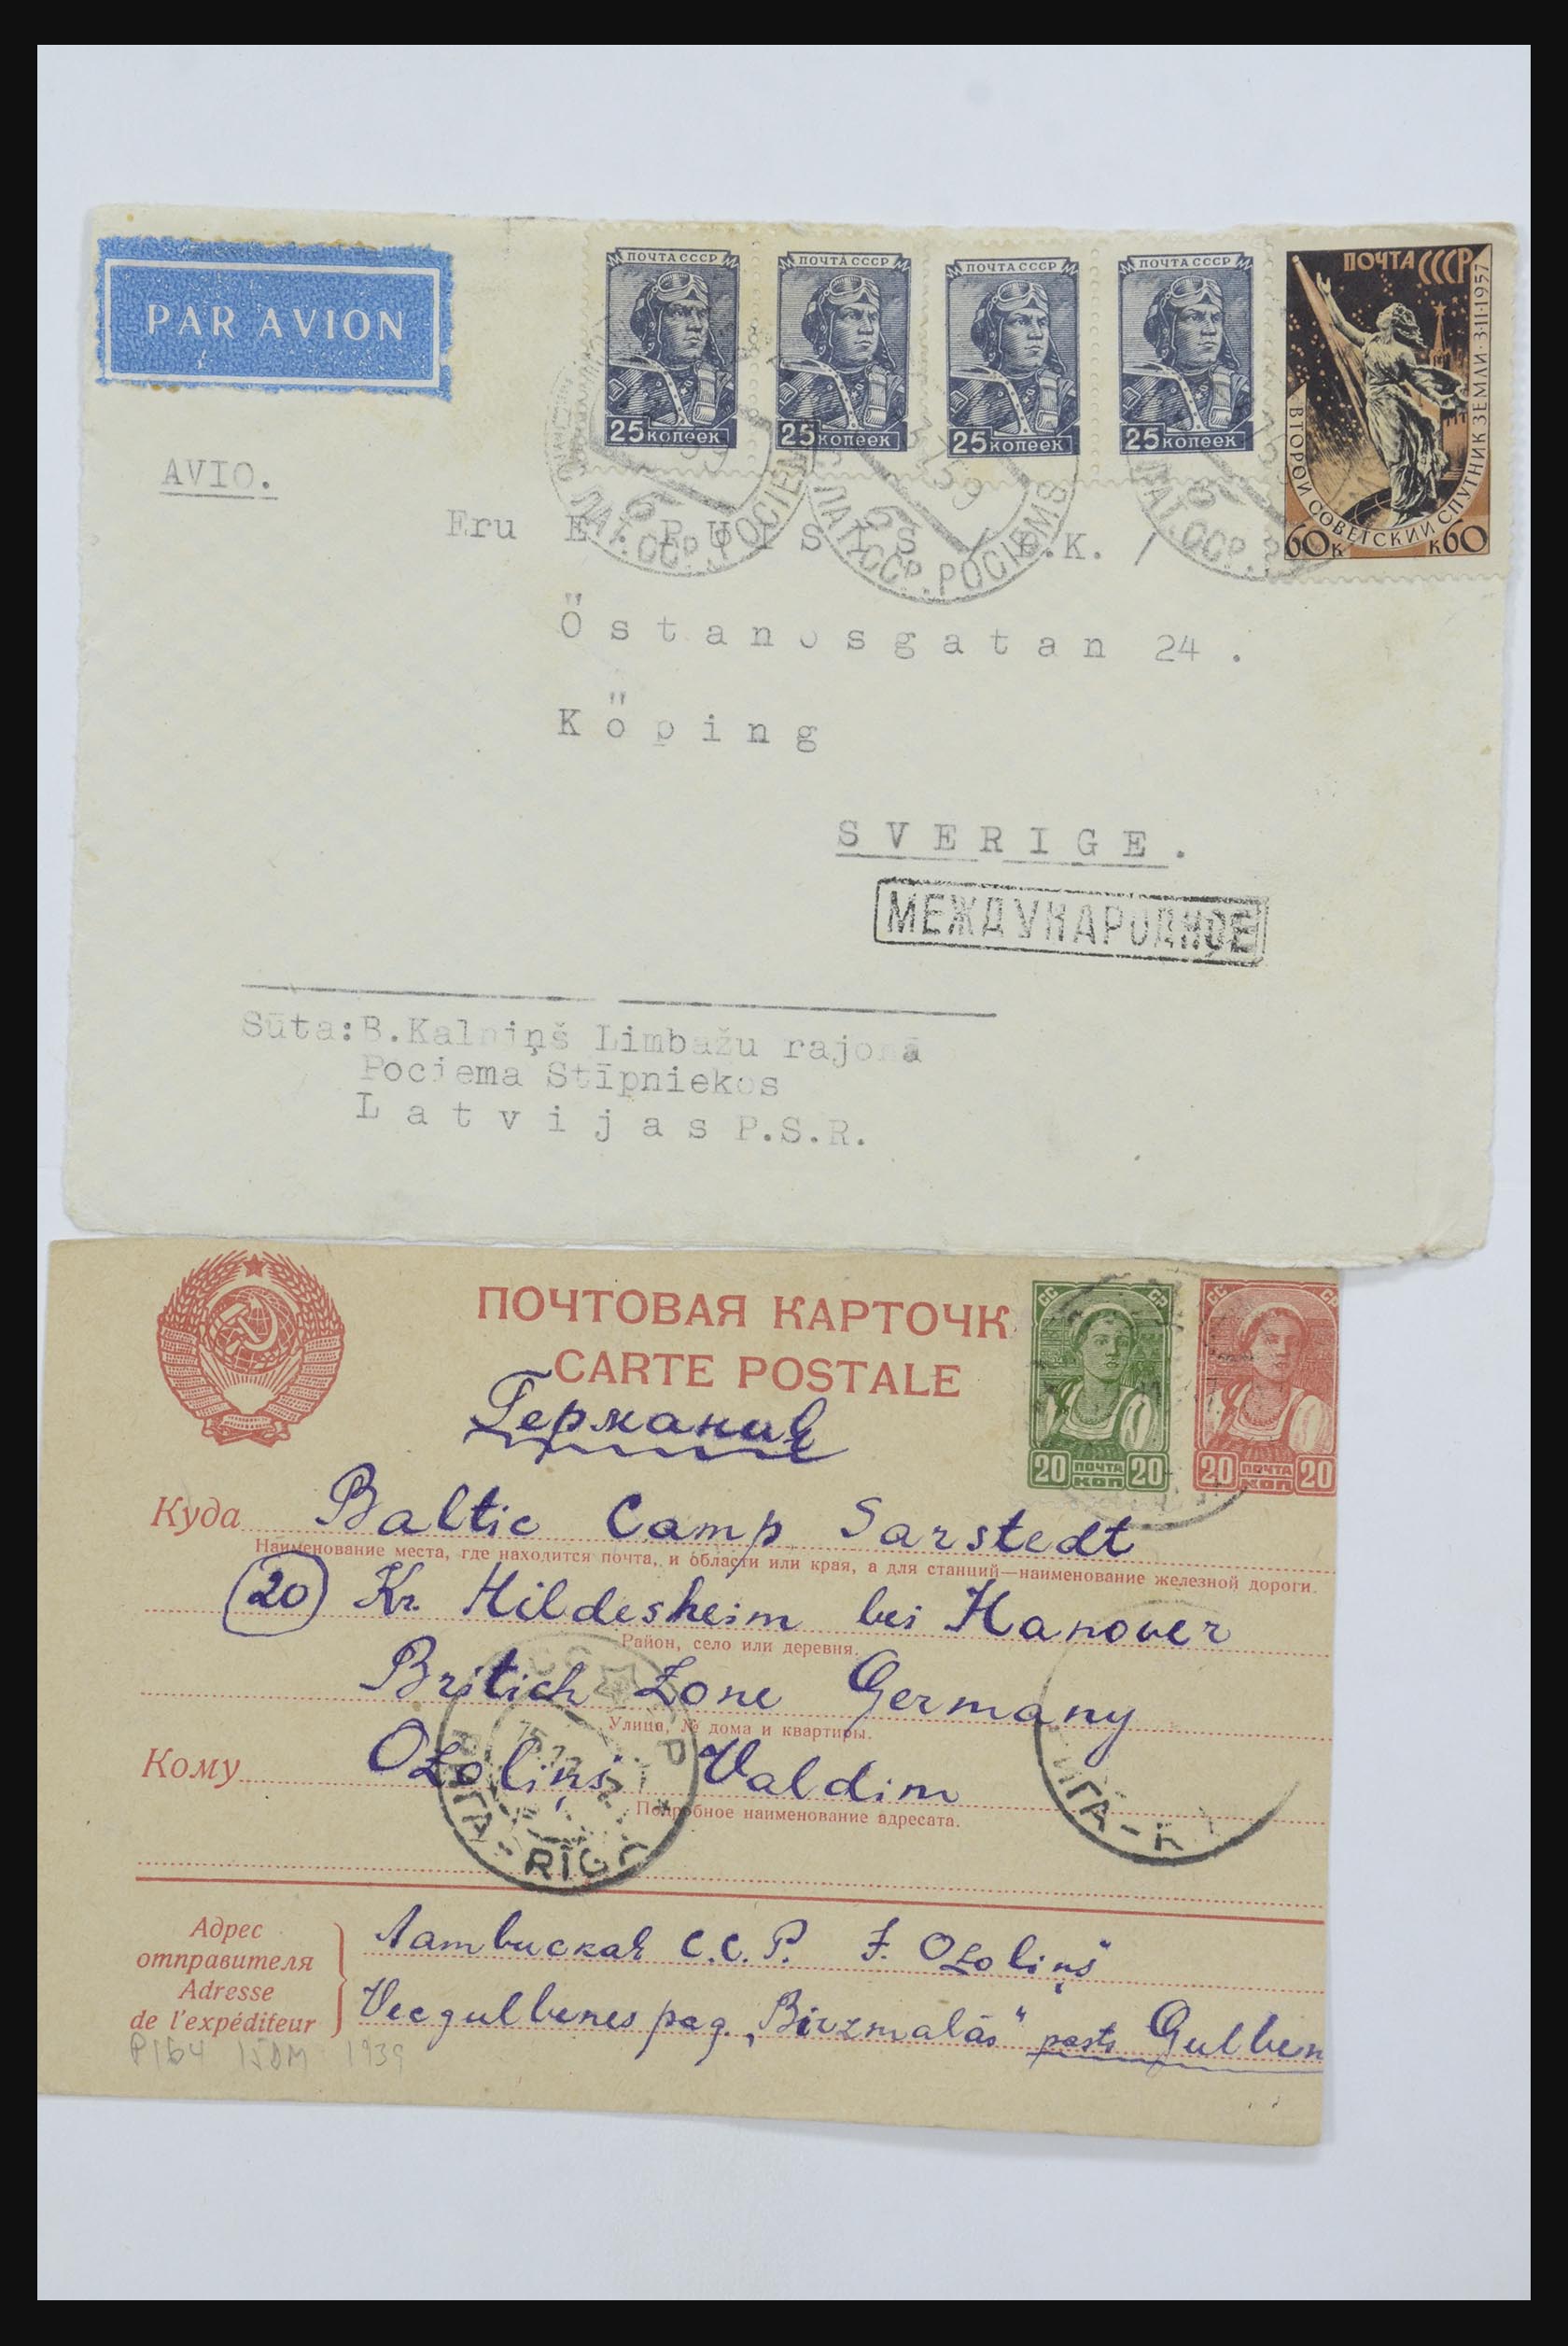 PAR AVION
ПОЧТА СССР
25 копеек
ПОЧТА СССР
25 копеек
ПОЧТА СССР
25 копеек
ПОЧТА СССР
25 копеек
ПОЧТА СССР
ВТОРОЙ СОВЕТСКИЙ СПУТНИК ЗЕМЛИ·3·11·1957
60к к60
AVIO.
ЛАТ.ССР. POCIEMS
ЛАТ.ССР. POCIEMS
ЛАТ.ССР.
Fru E. PUISIS / B.K. /
Östanosgatan 24.
Köping
SVERIGE.
МЕЖДУНАРОДНОЕ
Sūta: B.Kalniņš Limbažu rajonā
Pociema Stīpniekos
Latvijas P.S.R.
ПОЧТОВАЯ КАРТОЧК
CARTE POSTALE
СС СР
20 ПОЧТА КОП 20
СС СР
20 ПОЧТА КОП 20
Германия
Куда Baltic Camp Sarstedt
Наименование места, где находится почта, и области или края, а для станций—наименование железной дороги.
20 Kr. Hildesheim bei Hanover
Район, село или деревня.
Britich Zone Germany
Улица, № дома и квартиры.
Кому Ozoliņš Valdim
Подробное наименование адресата.
РИГА - RĪGA
ИГА - R
Адрес
отправителя
Adresse
de l'expéditeur
Латвиская С.С.Р. J. Ozoliņš
Vecgulbenes pag. „Birzmalās" pasts Gulben
1939